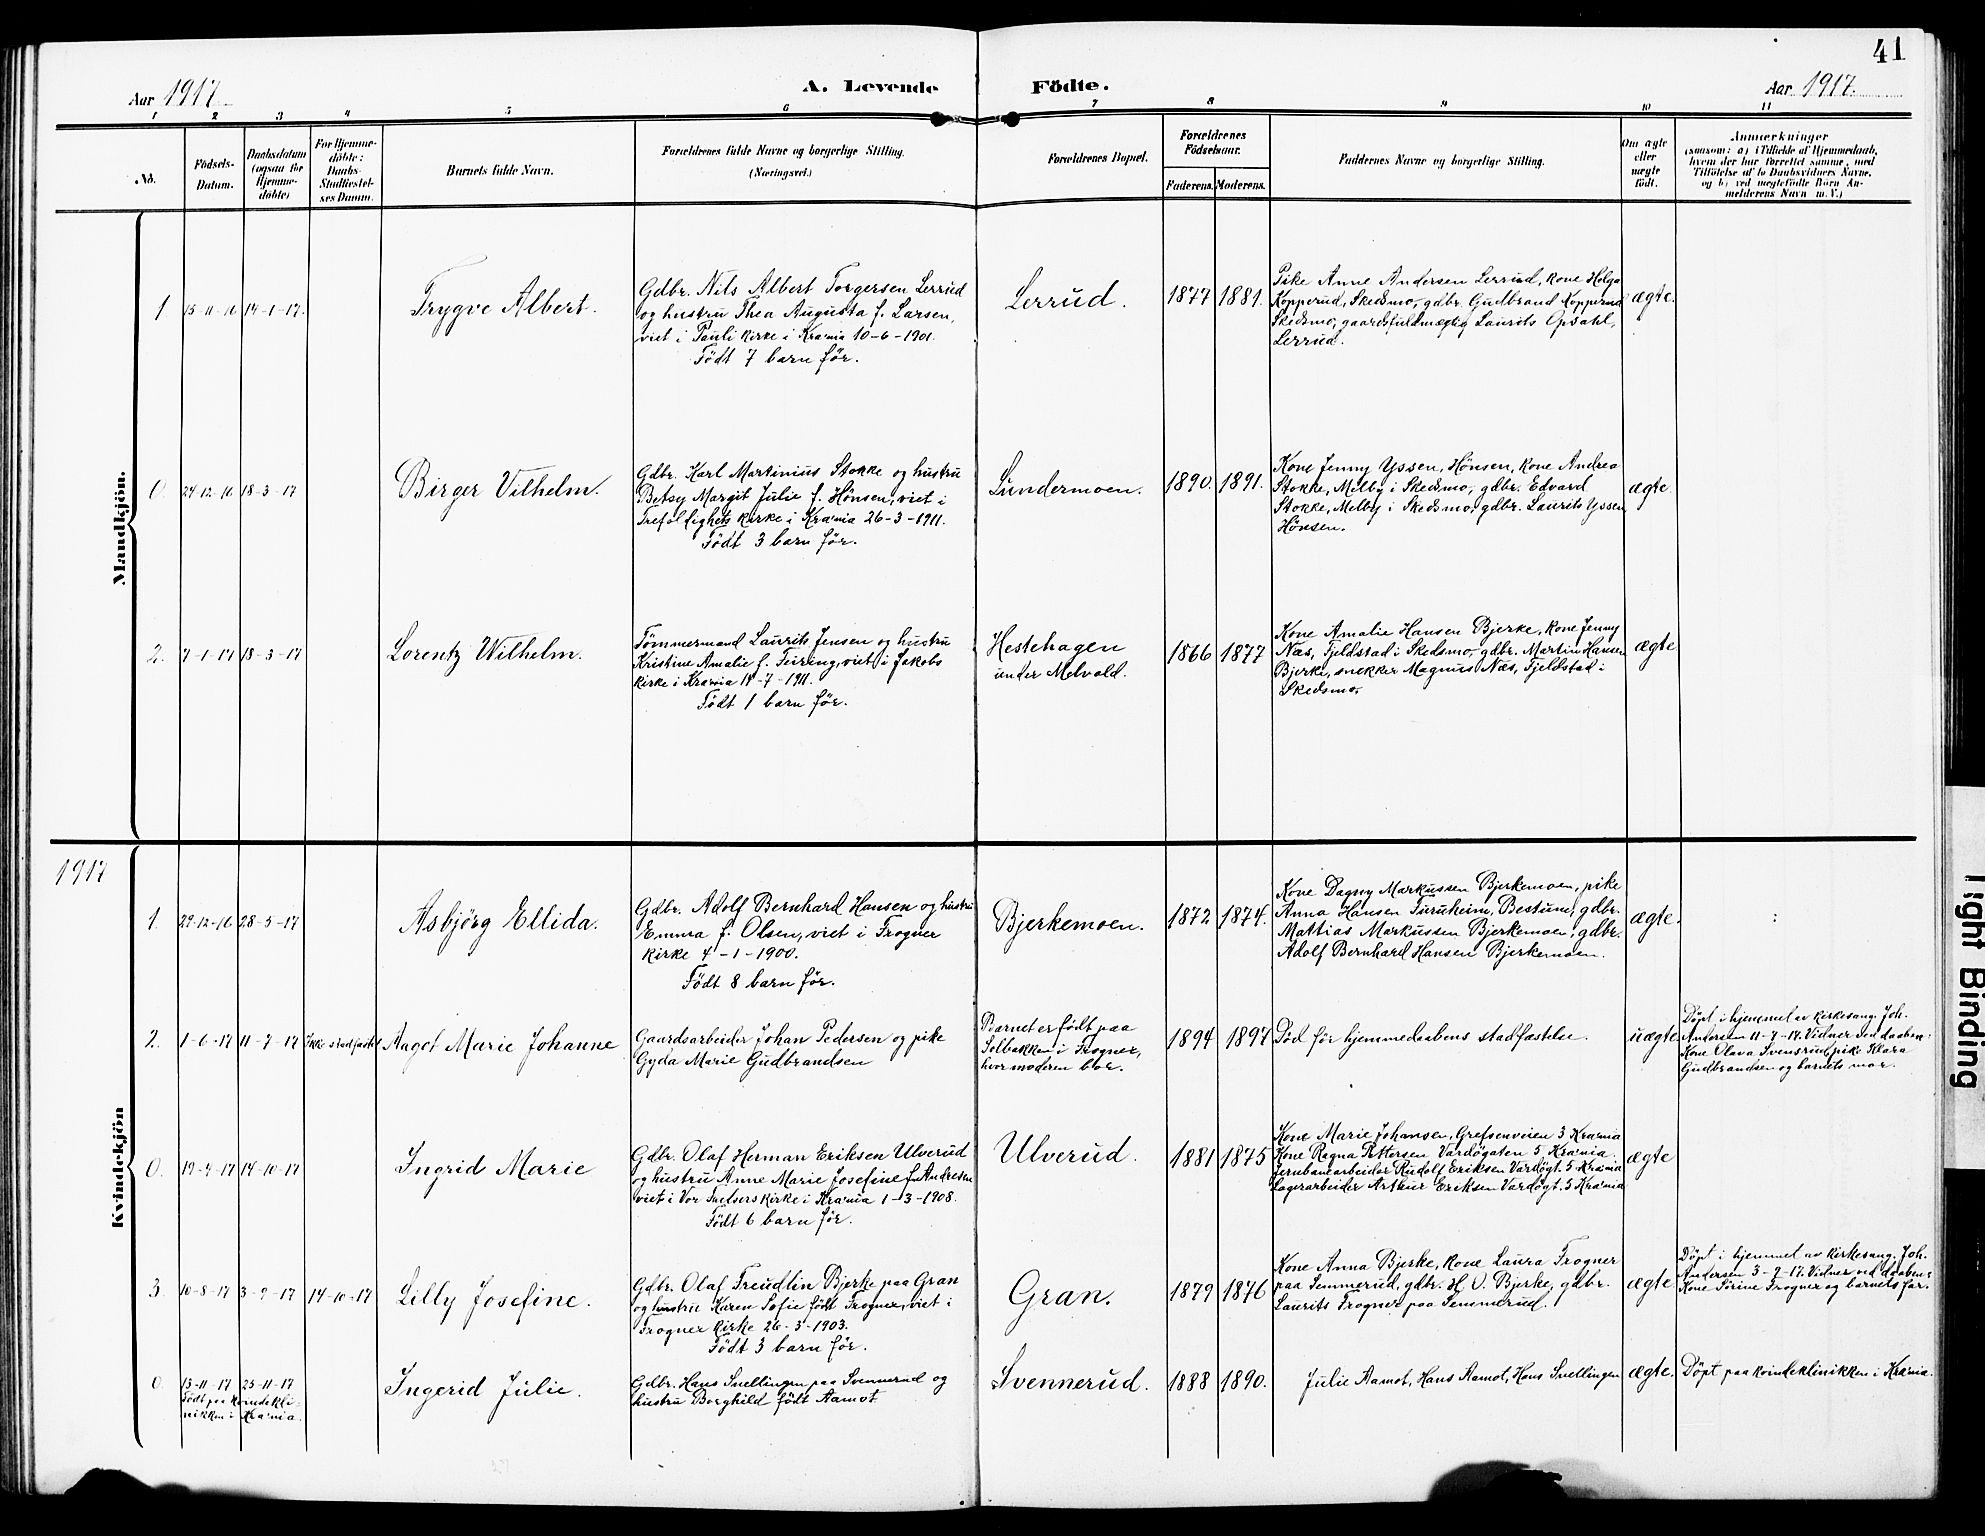 41
Aar 1917.
A. Levende Födte.
Aar 1917.
1 2 3 4 5 6 7 8 9 10 11
No.
Födsels-
Datum.
Daabsdatum
(ogsaa for
Hjemme-
döbte)
For Hjemme-
döbte:
Daabs-
Stadfæstel-
ses Datum.
Barnets fulde Navn.
Forældrenes fulde Navne og borgerlige Stilling.
(Næringsvei.)
Forældrenes Bopæl.
Forældrenes
Födselsaar.
Faderens. Moderens.
Faddernes Navne og borgerlige Stilling.
Om ægte
eller
uægte
födt.
Anmærkninger
(saasom: a) i Tilfælde af Hjemmedaab,
hvem der har forrettet samme, med
Tilföielse af to Daabsvidners Navne,
og b) ved uægtefödte Börn An-
melderens Navn m. V.)
Mandkjön.
1 15-11-16 14-1-17.
Trygve Albert.
Gdbr. Nils Albert Torgersen Lerrud
og hustru Thea Augusta f. Larsen,
viet i Pauli kirke i Kra'nia 10-6-1901.
Født 7 barn før.
Lerrud.
1877 1881.
Pike Anne Andersen Lerrud, kone Helga
Kopperud, Skedsmo, gdbr. Gudbrand Kopperud
Skedsmo, gaardsfuldmægtig Laurits Opsahl,
Lerrud.
ægte.
0. 24-12-16 18-3-17
Birger Vilhelm.
Gdbr. Karl Martinius Stokke og hustru
Betsy Margit Julie f. Hønsen, viet i
Trefoldighets kirke i Kra'nia 26-3-1911.
Født 3 barn før.
Lundermoen.
1890. 1891.
Kone Jenny Yssen, Hønsen, kone Andrea
Stokke, Melby i Skedsmo, gdbr. Edvard
Stokke, Melby i Skedsmo, gdbr. Laurits Yssen,
Hønsen.
ægte.
2. 7-1-17 18-3-17
Lorentz Wilhelm.
Tømmermand Laurits Jensen og hustru
Kristine Amalie f. Feiring, viet i Jakobs
kirke i Kra'nia 14-7-1911.
Født 1 barn før.
Hestehagen
under Melvold.
1866 1877
Kone Amalie Hansen Bjerke, kone Jenny
Næs, Fjeldstad i Skedsmo, gdbr. Martin Hansen
Bjerke, snekker Magnus Næs, Fjeldstad i
Skedsmo.
ægte
1917
Kvindekjön
1. 22-12-16 28-5-17
Asbjörg Ellida.
Gdbr. Adolf Bernhard Hansen og hustru
Emma f. Olsen, viet i Frogner
kirke 4-1-1900.
Født 8 barn før.
Bjerkemoen.
1872 1874.
Kone Dagny Markussen Bjerkemoen, pike
Anna Hansen Furuheim, Bestum, gdbr.
Mattias Markussen Bjerkemoen, gdbr.
Adolf Bernhard Hansen Bjerkemoen.
ægte.
2. 1-6-17 11-7-17 Ikke stadfæstet
Aagot Marie Johanne
Gaardsarbeider Johan Pedersen og pike
Gyda Marie Gudbrandsen
Barnet er født paa
Solbakken i Frogner,
hvor moderen bor.
1894 1897
Død før hjemmedaabens stadfæstelse.
uægte
Døpt i hjemmet av kirkesang. Joh.
Andersen 11-7-17. Vidner ved daaben:
Kone Olava Svensrud, pike Klara
Gudbrandsen og barnets mor.
0. 19-9-17 14-10-17
Ingrid Marie
Gdbr. Olaf Herman Eriksen Ulverud
og hustru Anne Marie Josefine f. Andresen
viet i Vor Frelsers kirke i Kra'nia 1-13-1908.
Født 6 barn før.
Ulverud.
1881 1875
Kone Marie Johansen, Grefsenveien 3 Kra'nia
Kone Ragna Pettersen Vardøgaten 5 Kra'nia.
Jernbanearbeider Rudolf Eriksen Vardøgt. 5 Kra'nia
Lagerarbeider Arthur Eriksen Vardøgt. 5 Kra'nia
ægte
3. 10-8-17 3-9-17 14-10-17
Lilly Josefine.
Gdbr. Olaf Freudlin Bjerke paa Gran
og hustru Karen Sofie født Frogner, viet i
Frogner kirke 26-3-1903.
Født 3 barn før.
Gran.
1879 1876
Kone Anna Bjerke, kone Laura Frogner
paa Semmerud, gdbr. H. O. Bjerke, gdbr.
Laurits Frogner paa Semmerud.
ægte
Døpt i hjemmet av kirkesang. Joh.
Andersen 3-9-17. Vidner ved daaben:
Kone Sirine Frogner og barnets far.
0. 13-11-17 25-11-17
Født paa kvindekli-
nikken i Kra'nia.
Ingerid Julie.
Gdbr. Hans Snellingen paa Svennerud og
hustru Borghild født Aamot
Svennerud.
1888 1890.
Julie Aamot, Hans Aamot, Hans Snellingen
ægte.
Døpt paa kvindeklinikken i Kra'nia.
Tight Binding